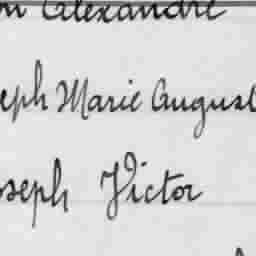 on Alexandre
eph Marie August
oseph Victor